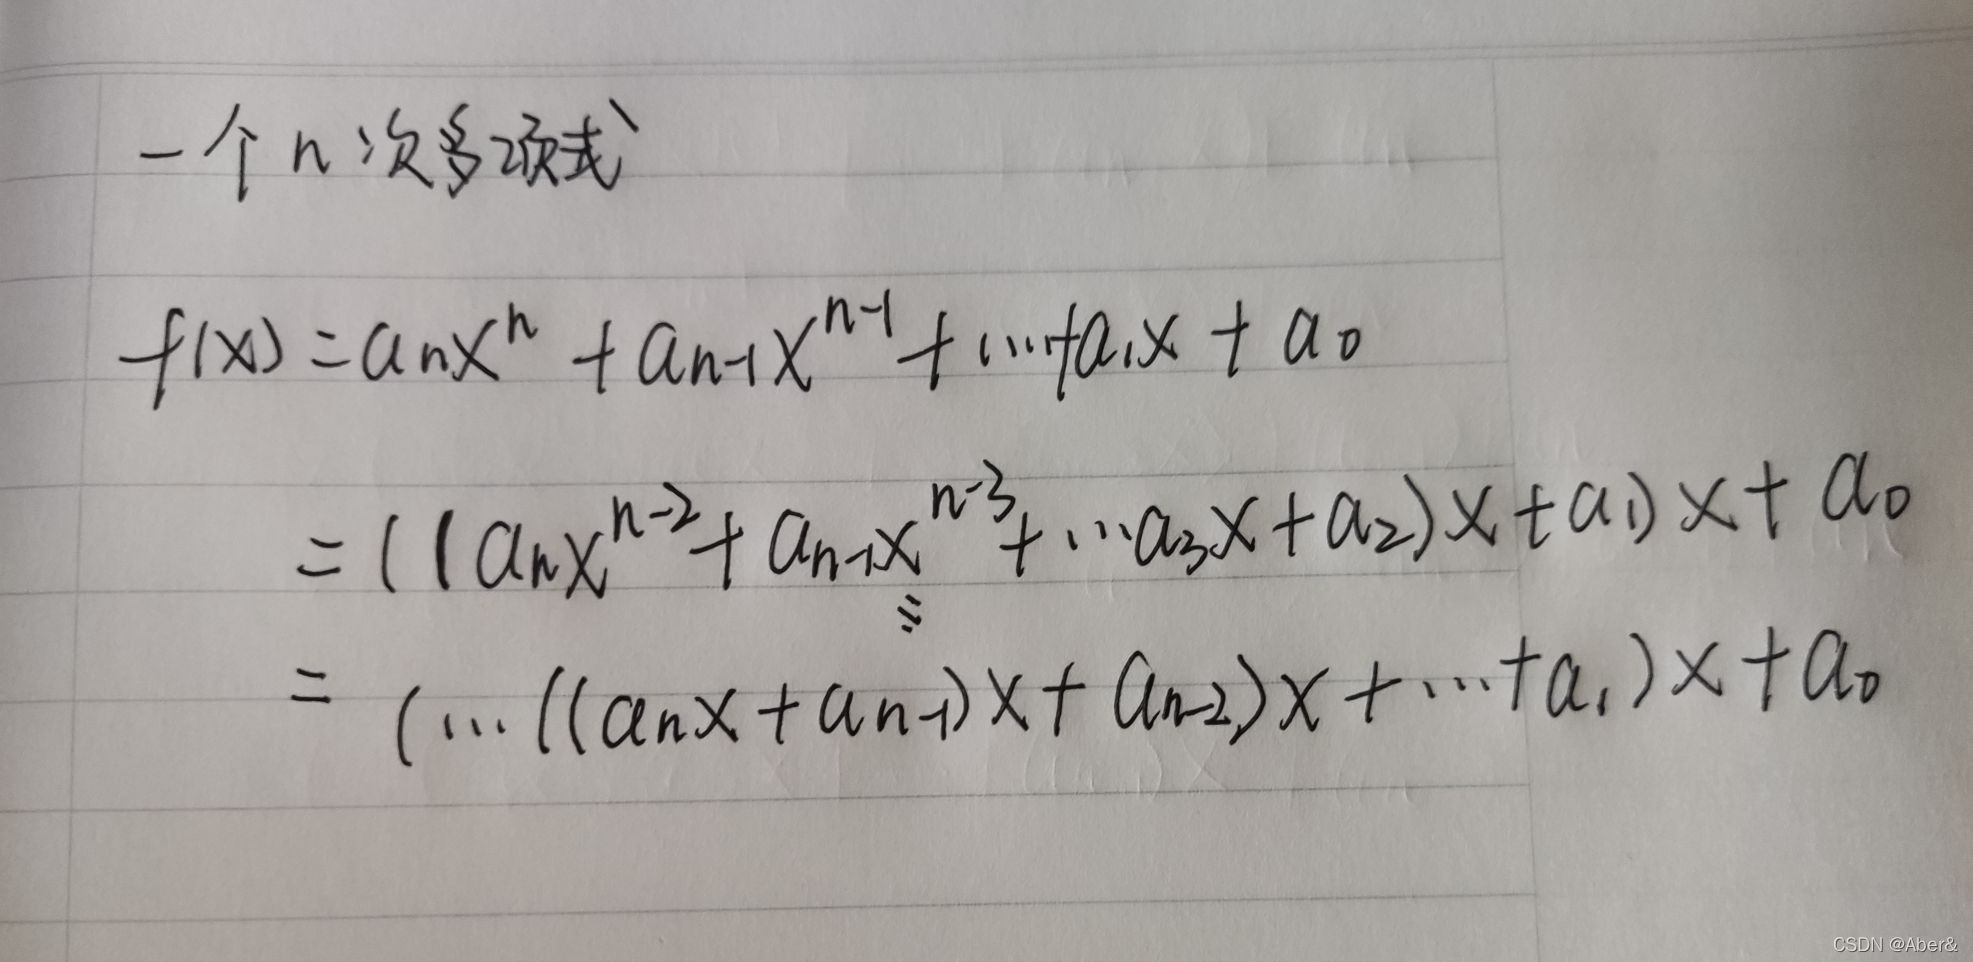 一个n次多项式
f(x)=aₙxⁿ+aₙ₋₁xⁿ⁻¹+…+a₁x+a₀
=((aₙxⁿ⁻²+aₙ₋₁xⁿ⁻³+…a₃x+a₂)x+a₁)x+a₀
=(…((aₙx+aₙ₋₁)x+aₙ₋₂)x+…+a₁)x+a₀
CSDN @Aber&